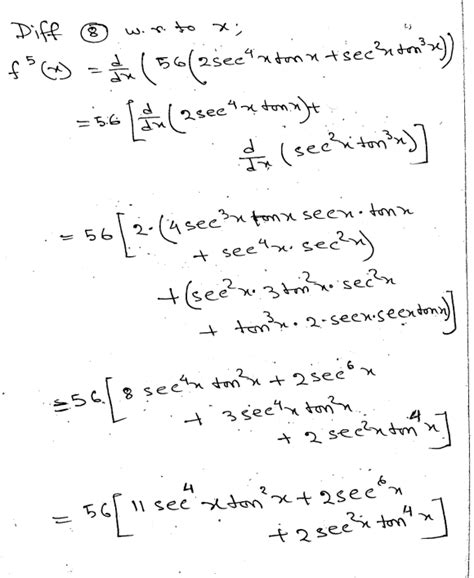 Diff ⑧ w.r.to x;
f⁵(x) = d/dx (56(2sec⁴x tanx + sec²x tan³x))
= 56 [d/dx (2sec⁴x tanx) +
d/dx (sec²x tan³x)]
= 56 [2·(4sec³x tanx secx · tanx
+ sec⁴x · sec²x)
+ (sec²x · 3tan²x · sec²x
+ tan³x · 2·secx·secx tanx)]
= 56 [8 sec⁴x tan²x + 2sec⁶x
+ 3sec⁴x tan²x
+ 2sec²x tan⁴x]
= 56 [11 sec⁴x tan²x + 2sec⁶x
+ 2sec²x tan⁴x]